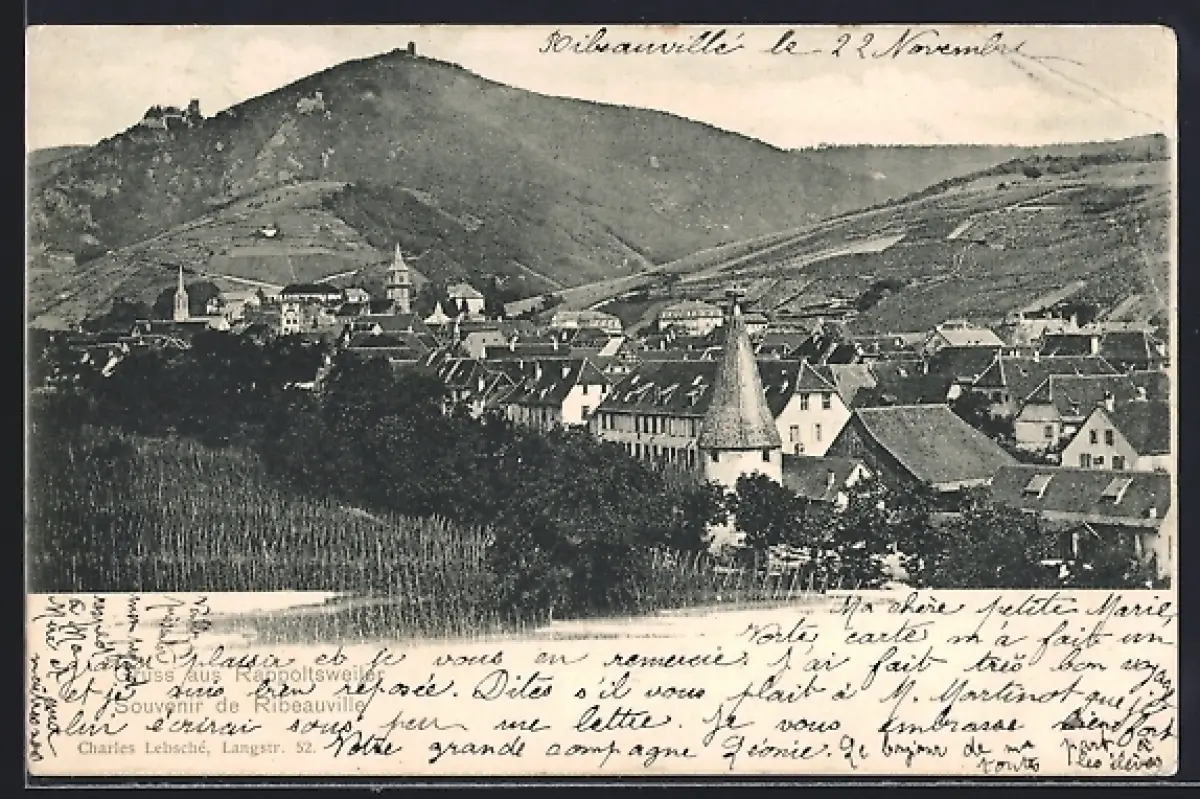 Ribeauvillé le 22 Novembre
Ma chère petite Marie,
Votre carte m'a fait un
grand plaisir et je vous en remercie. J'ai fait très bon voyage
et je suis bien reposée. Dites s'il vous plait à M. Martinot que je
lui écrirai sous peu une lettre. Je vous embrasse bien fort
Votre grande compagne Léonie. Le bonjour de ma part à
toutes les élèves
Gruss aus Rappoltsweiler
Souvenir de Ribeauvillé
Charles Lebsché, Langstr. 52.